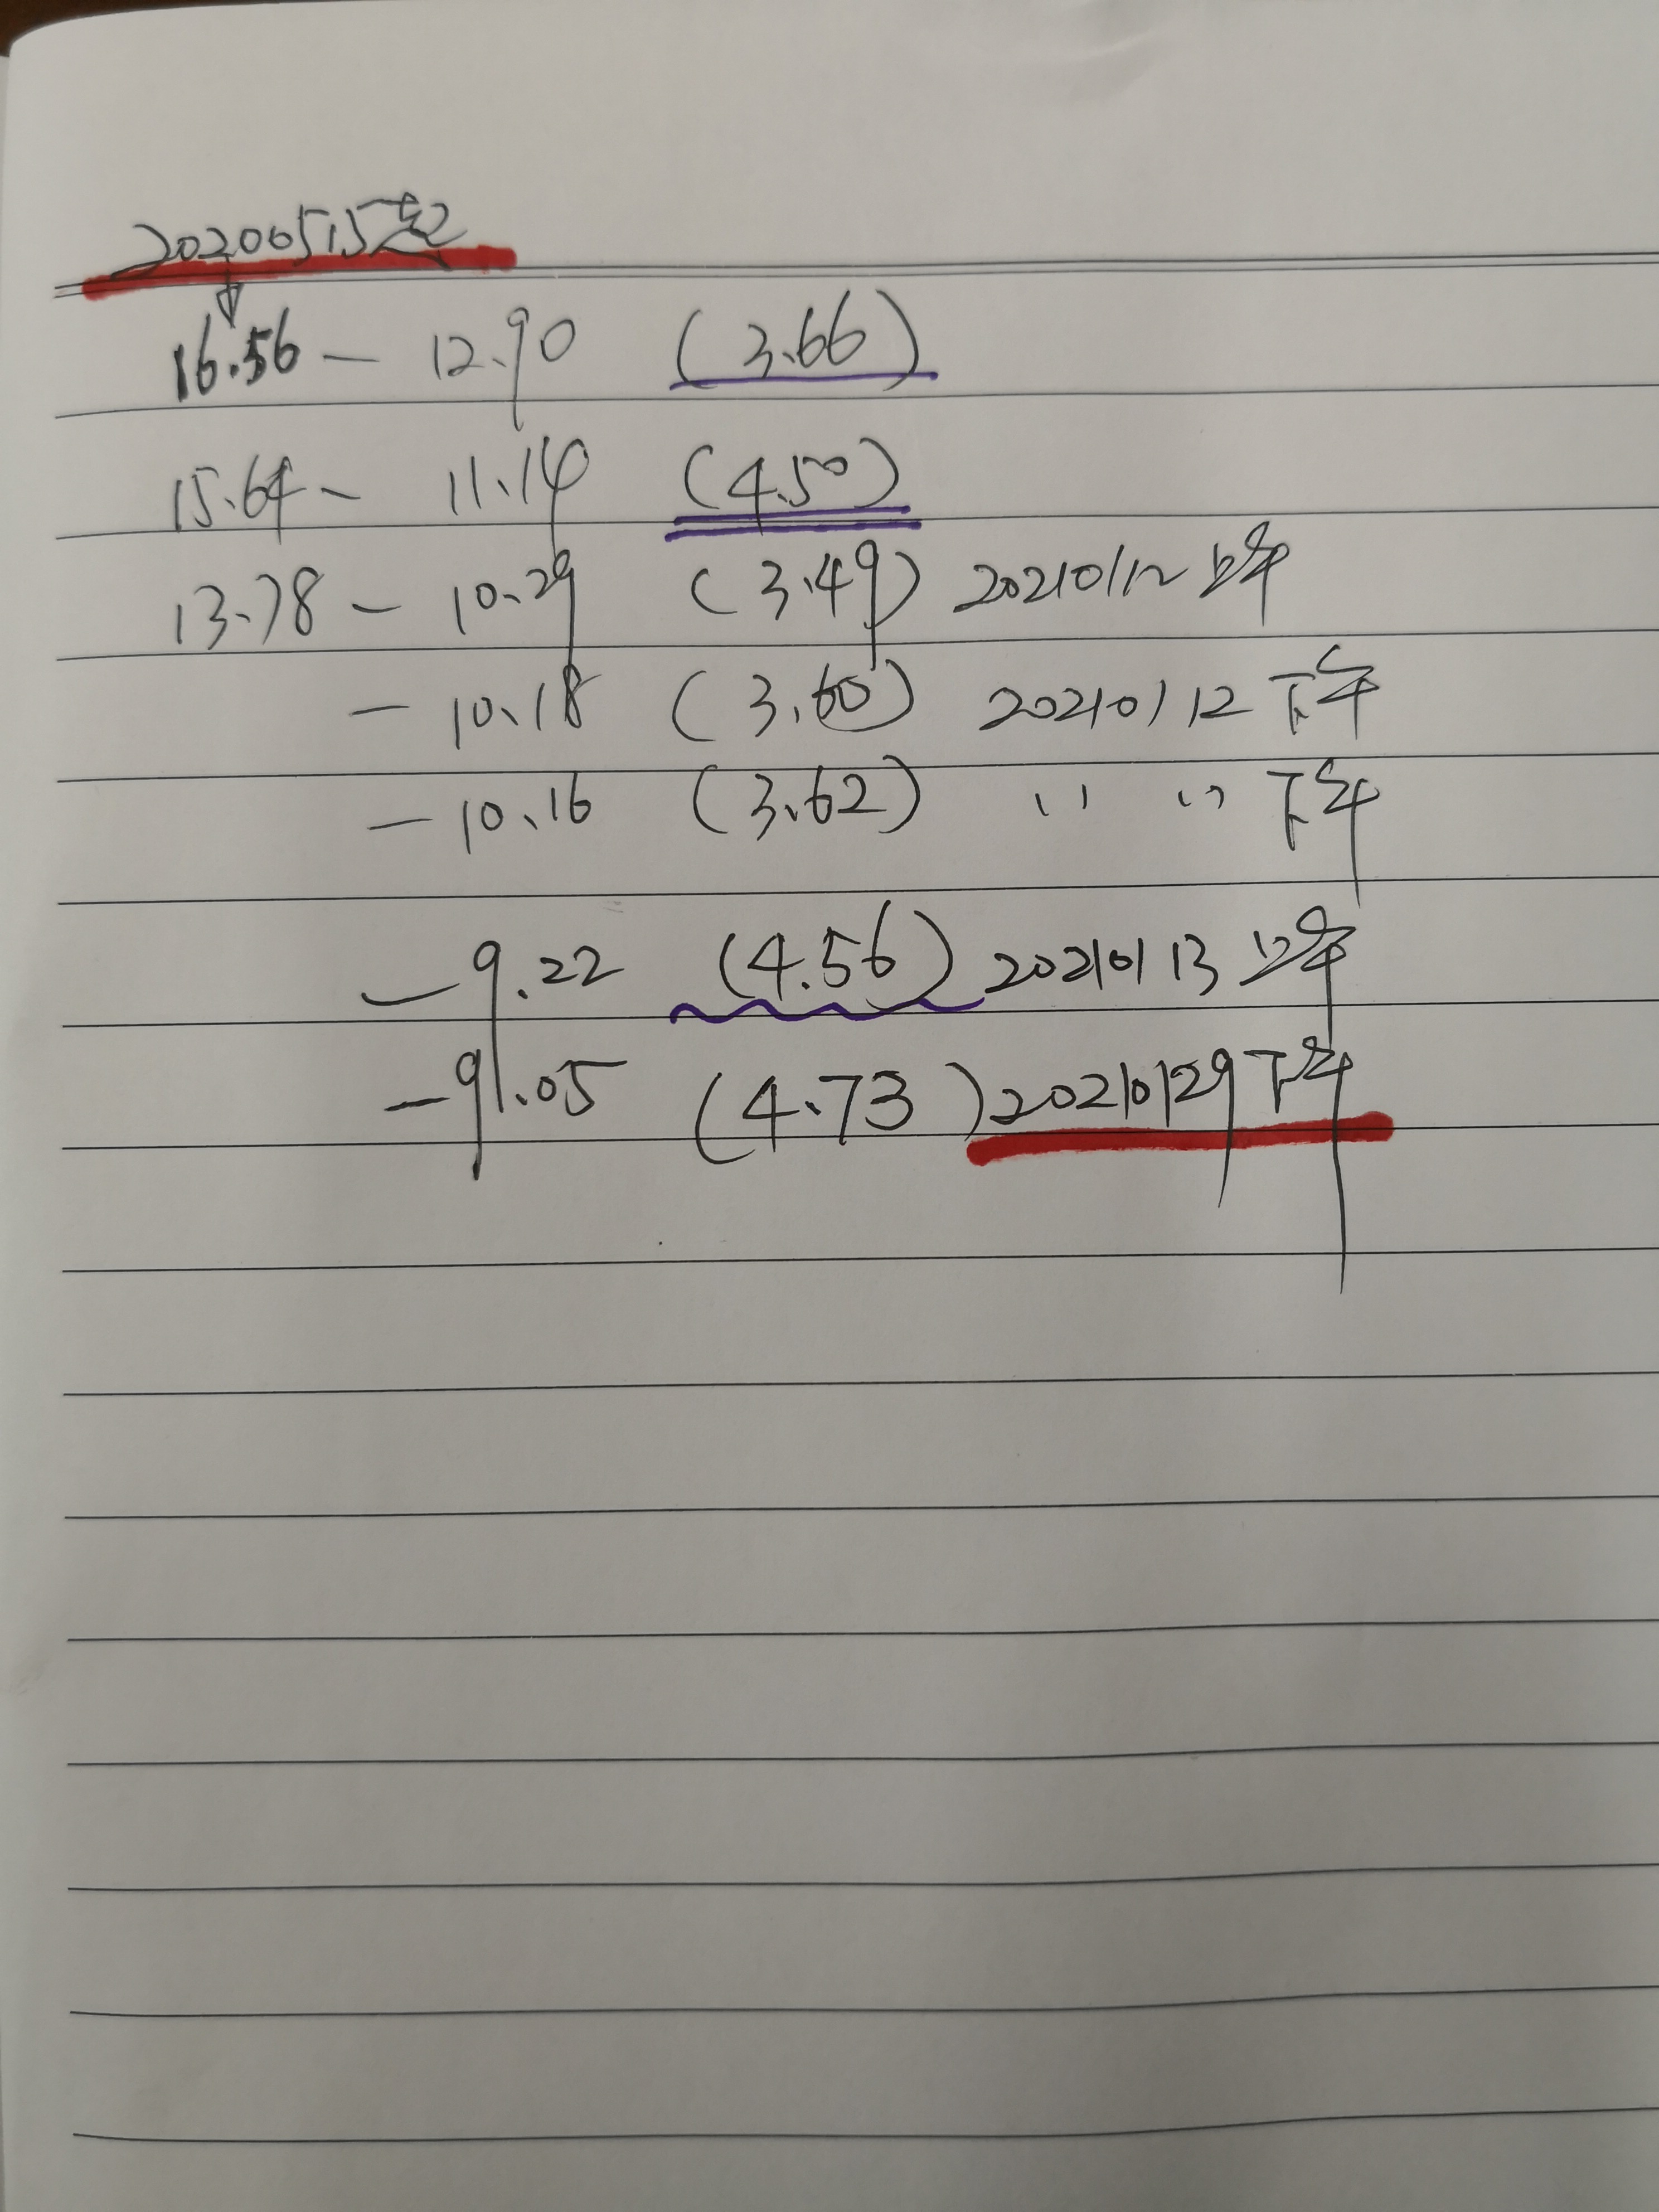 20200515起
16.56 — 12.90 (3.66)
15.64 - 11.14 (4.50)
13.78 — 10.29 (3.49) 20210112 上午
— 10.18 (3.60) 20210112 下午
— 10.16 (3.62) 〃 〃 下午
— 9.22 (4.56) 20210113 上午
— 9.05 (4.73) 20210129 下午